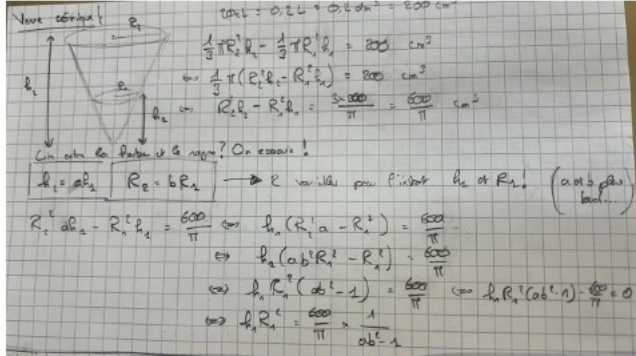 Verre conique!
20cL = 0,2L = 0,2 dm³ = 200 cm³
R₁
R₂
h₂
h₁
1/3 πR₂²h₂ - 1/3 πR₁²h₁ = 200 cm³
⇔ 1/3 π(R₂²h₂-R₁²h₁) = 200 cm³
⇔ R₂²h₂ - R₁²h₁ = 3×200/π = 600/π cm³
Lien entre la hauteur et le rayon? On essaie!
h₂ = ah₁ R₂ = bR₁ → 2 variables pour l'instant h₁ et R₁! (a et b plus tard...)
R₂²ah₁ - R₁²h₁ = 600/π ⇔ h₁(R₂²a - R₁²) = 600/π
⇔ h₁(ab²R₁² - R₁²) = 600/π
⇔ h₁R₁²(ab²-1) = 600/π ⇔ h₁R₁²(ab²-1) - 600/π = 0
⇔ h₁R₁² = 600/π × 1/ab²-1